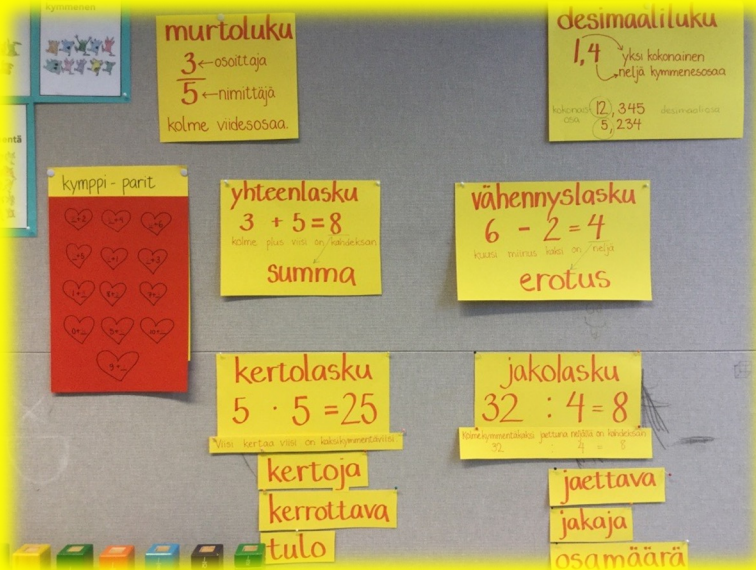 kymmenen
murtoluku
3 ← osoittaja
5 ← nimittäjä
kolme viidesosaa.
desimaaliluku
1,4
yksi kokonainen
neljä kymmenesosaa
12,345
5,234
kymppi - parit
yhteenlasku
3 + 5 = 8
kolme plus viisi on kahdeksan
summa
vähennyslasku
6 - 2 = 4
kuusi miinus kaksi on neljä
erotus
kertolasku
5 · 5 = 25
Viisi kertaa viisi on kaksikymmentäviisi
kertoja
kerrottava
tulo
jakolasku
32 : 4 = 8
32 : 4 = 8
jaettava
jakaja
osamäärä